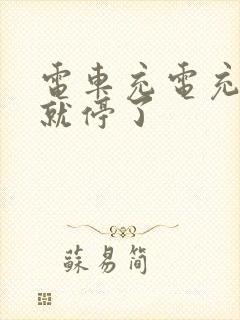 電車充電充
就停了
蘇易簡